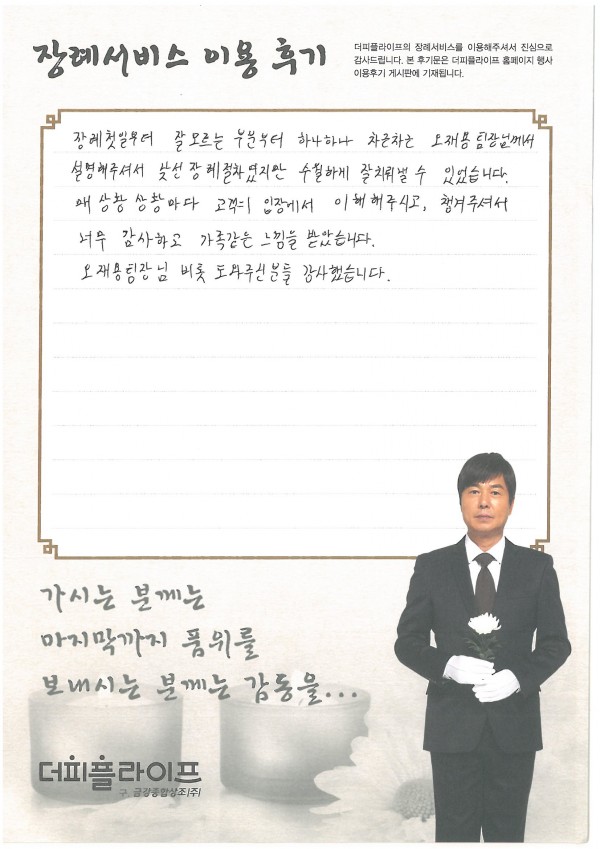 장례서비스 이용 후기
더피플라이프의 장례서비스를 이용해주셔서 진심으로
감사드립니다. 본 후기문은 더피플라이프 홈페이지 행사
이용후기 게시판에 기재됩니다.
장례첫일부터 잘모르는 부분부터 하나하나 차근차근 오재용팀장님께서
설명해주셔서 낯선장례절차였지만 수월하게 잘치뤄낼 수 있었습니다.
매 상황 상황마다 고객의 입장에서 이해해주시고, 챙겨주셔서
너무 감사하고 가족같은 느낌을 받았습니다.
오재용팀장님 비롯 도와주신분들 감사했습니다.
가시는 분께는
마지막까지 품위를
보내시는 분께는 감동을...
더피플라이프
구. 금강종합상조(주)